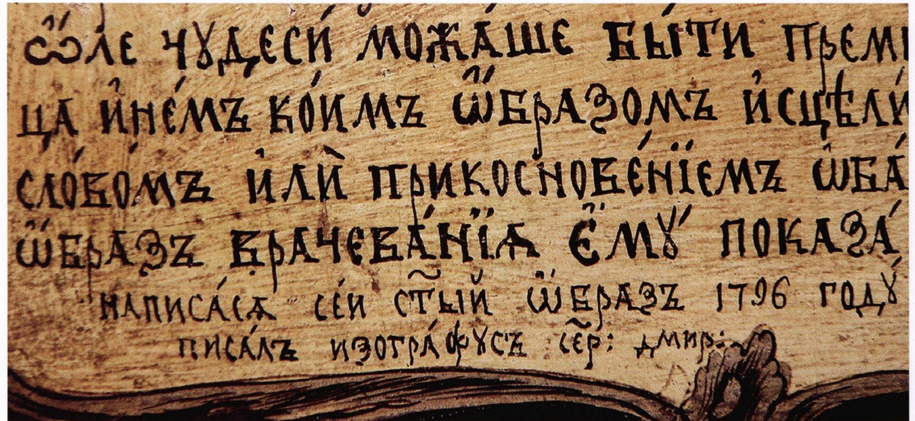 Ѽле чꙋдесѝ можа́ше бы́ти преми
ца и҆не́мъ ко́имъ ѡ҆́бразомъ и҆сцѣли
сло́вомъ и҆лѝ прикоснове́нїемъ ѡба́
ѡ҆́бразъ врачева́нїѧ є҆мꙋ̀ показа́
написа́сѧ се́и ст҃ы́й ѡ҆́бразъ 1796 годꙋ̀
писа́лъ изогра́фꙋсъ се҃р: дмир: